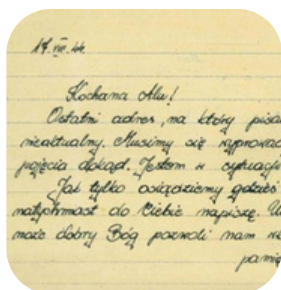 17.VIII.44.
Kochana Alu!
Ostatni adres, na który pisa
nieaktualny. Musimy się wyprowad
pojęcia dokąd. Jestem w sytuacji
Jak tylko osiądziemy gdzieś
natychmiast do Ciebie napiszę. W
może dobry Bóg pozwoli nam
pamię